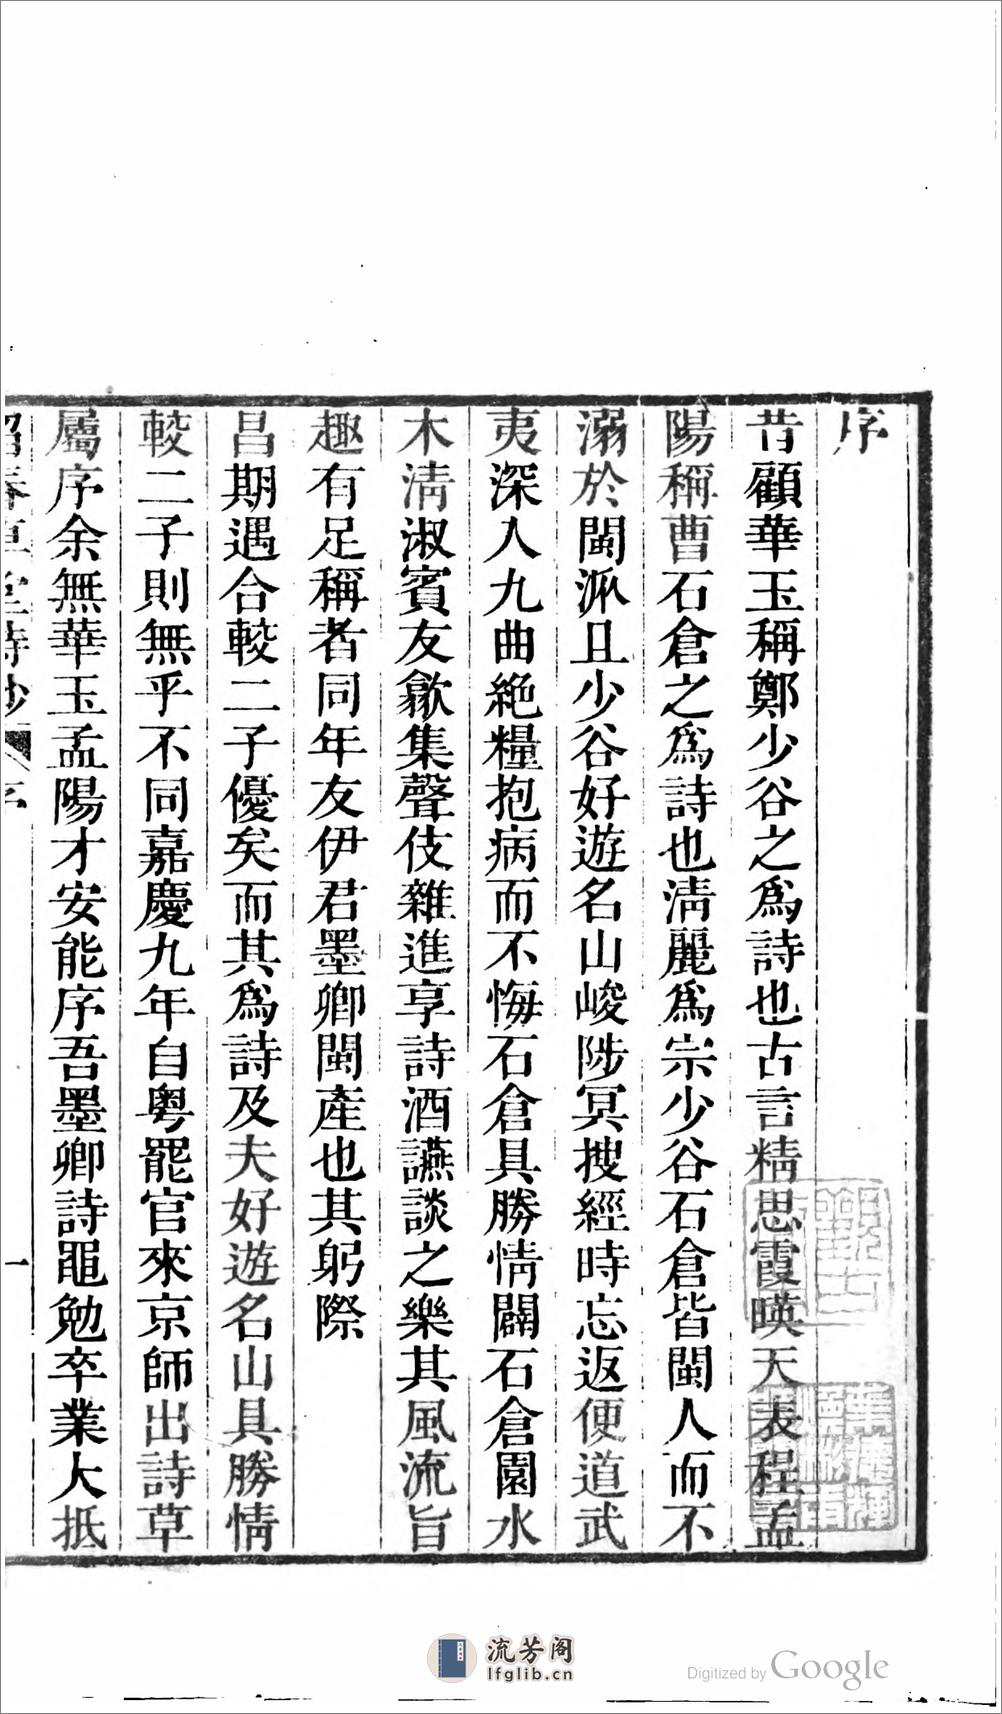 序
昔顧華玉稱鄭少谷之爲詩也古言精思霞暎天表程孟
陽稱曹石倉之爲詩也淸麗爲宗少谷石倉皆閩人而不
溺於閩派且少谷好遊名山峻陟冥搜經時忘返便道武
夷深入九曲絶糧抱病而不悔石倉具勝情闢石倉園水
木淸淑賓友歙集聲伎雜進享詩酒讌談之樂其風流旨
趣有足稱者同年友伊君墨卿閩產也其躬際
昌期遇合較二子優矣而其爲詩及夫好遊名山具勝情
較二子則無乎不同嘉慶九年自粤罷官來京師出詩草
屬序余無華玉孟陽才安能序吾墨卿詩黽勉卒業大抵
留春草堂詩鈔 序 一
流芳阁
lfglib.cn
Digitized by Google